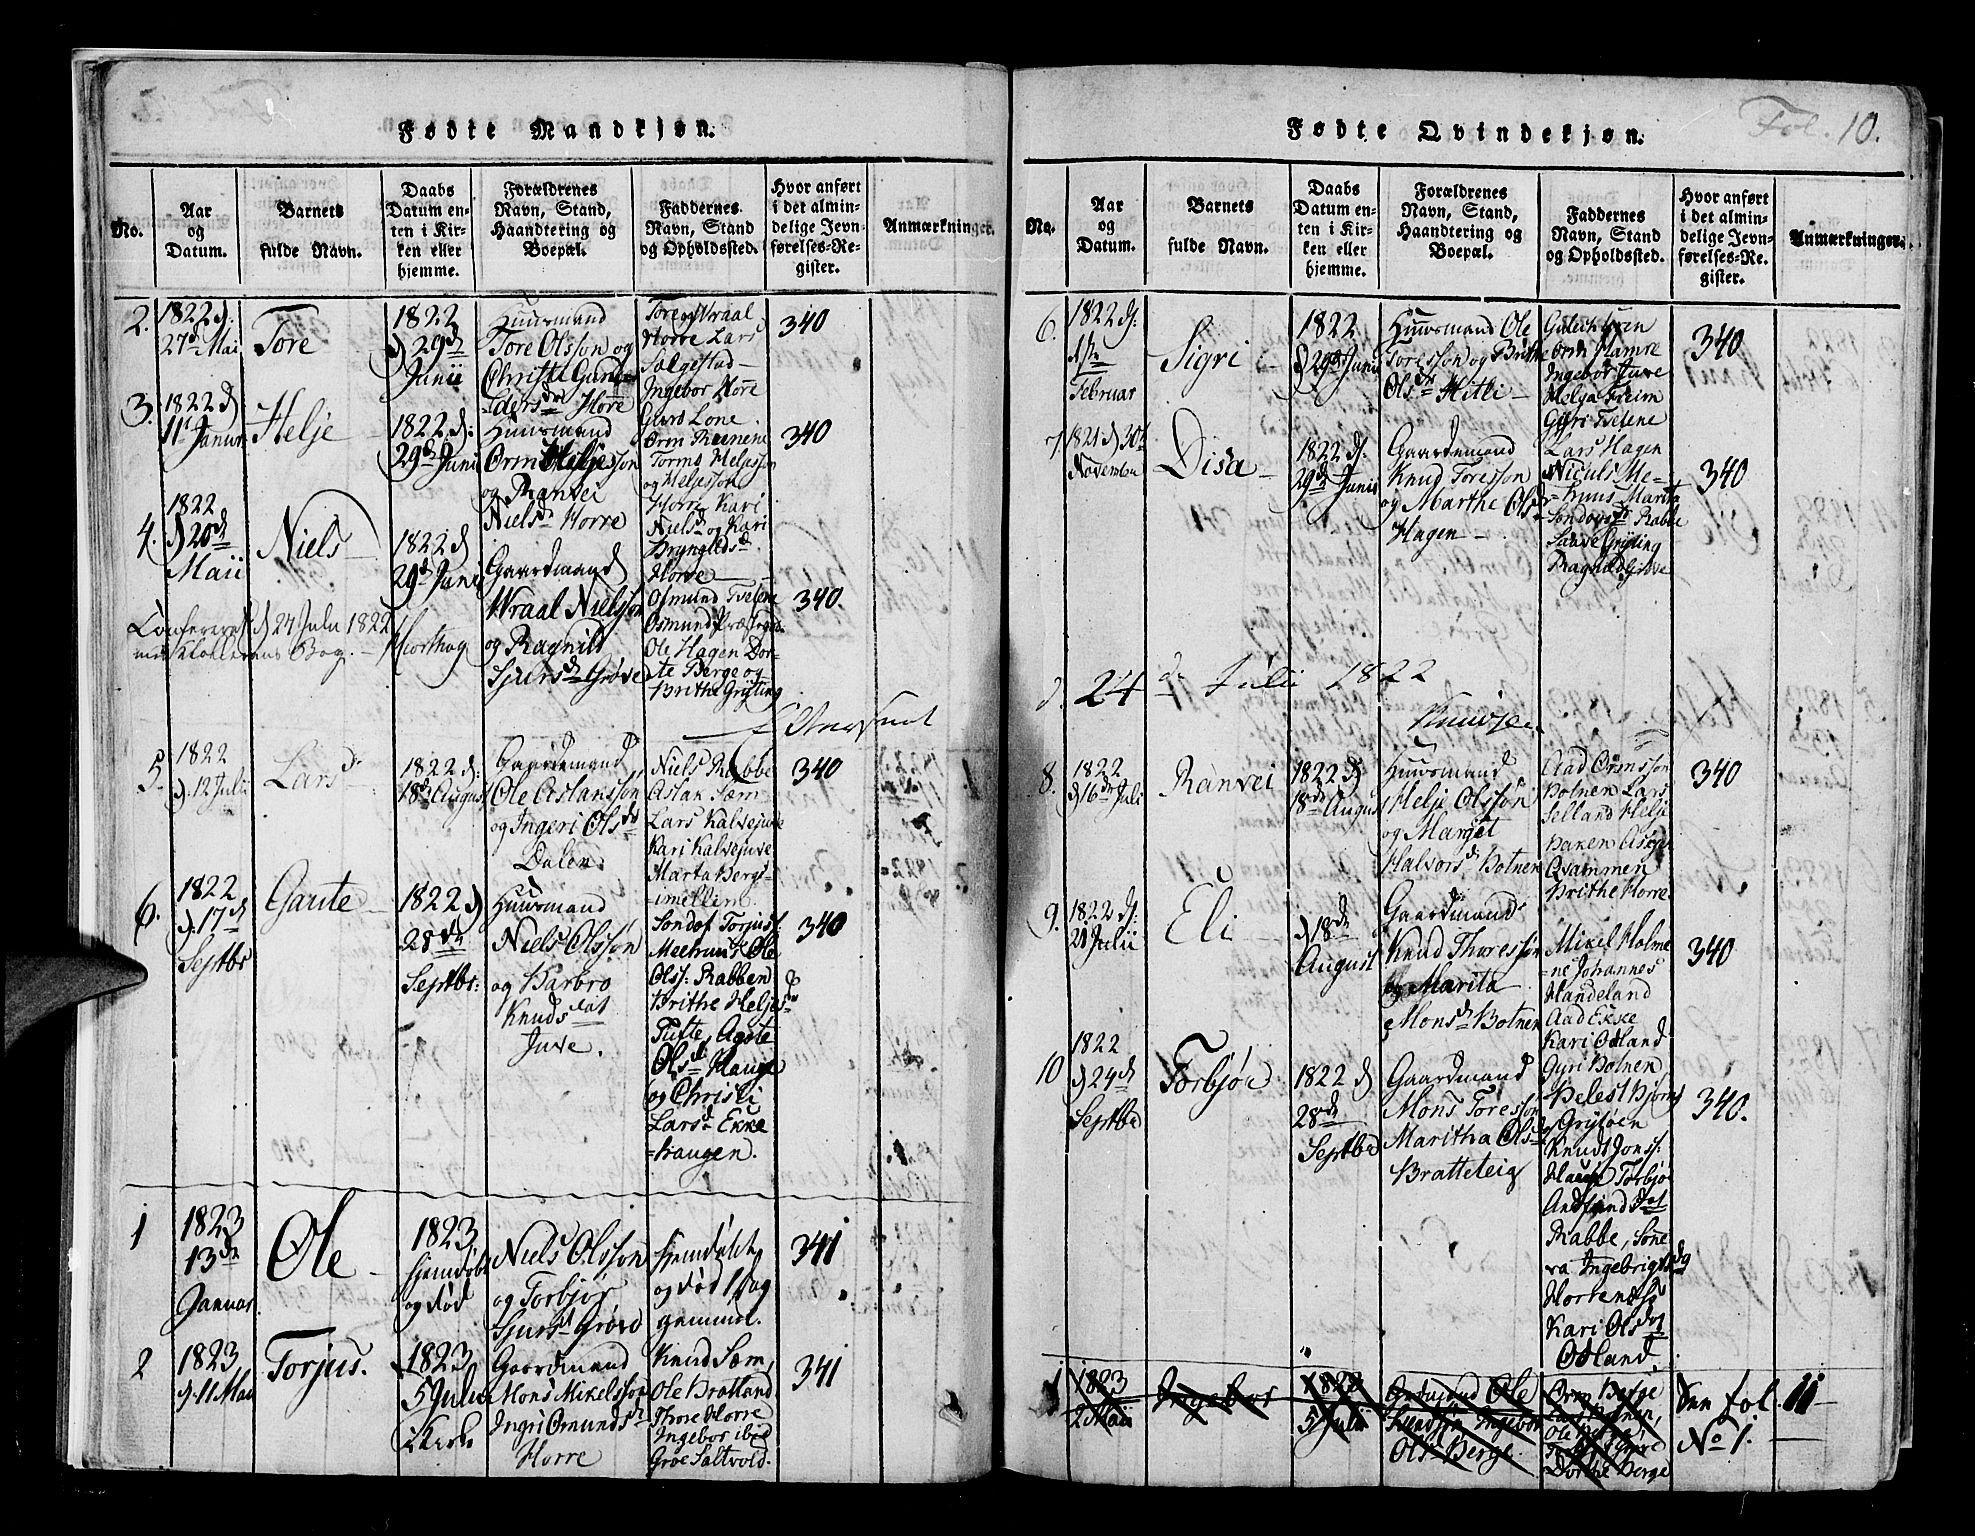 Fødte Mandkjøn.
No.
Aar
og
Datum.
Barnets
fulde Navn.
Daabs
Datum en-
ten i Kir-
ken eller
hjemme.
Forældrenes
Navn, Stand,
Haandtering og
Boepæl.
Faddernes
Navn, Stand
og Opholdssted.
Hvor anført
i det almin-
delige Jevn-
førelses-Re-
gister.
Anmærkninger.
2.
1822 d.
27d Mai
Tore
1822
d 29de
Junii
Huusmand
Tore Olsson og
Christi Gun
Horre
Tore Wraal
Horre Lars
Salgestad
Ingebor Horre
340
3.
1822 d
11t Januar
Helje
1822 d.
29de Juni
Huusmand
Orm Heljesson
og Ranvei
Nielsd Horre
Guro Lone
Orm
Tormo Heljesson
og Heljesson
Horre Kari
Nielsd og Kari
Bryngledsd
Horre
340
4.
1822
d 20de
Maii
Niels
1822 d
29d Junii
Gaardmand
Wraal Nielsson
og Ragnild
Sjursd Grøve
Osmund Tvetene
Osmund
Ole Hagen Dor-
te Berge og
Brithe Gryting
340.
Confereret d 24 Julii 1822
Bog.
5.
1822
d. 12 Juli
Lars
1822 d:
18d August
Gaardemand
Ole Aslaksson
og Ingeri Olsdr
Dalen
Niels Rabbe
Aslak Sæm
Lars Kalvejuve
Kari Kalvejuve
Marta Bergs-
imellim.
340
6.
1822
d. 17d
Septbr
Gaute
1822 d
28de
Septbr:
Huusmand
Niels Olsson
og Barbro
Knudsdat
Juve.
Sondof Torjus:
Meehuus Ole
Olss: Rabben
Brithe Heljesd
Tufte, Agote
Olsd Hauge
og Christi
Larsd Ekke
=haugen.
340
1
1823
13de
Januar.
Ole
1823
hjemdøbt
og død
Niels Olsson
og Torbjør
Sjursd Grøve
hjemdøbt
og død 1 dag
gammel.
341
2
1823
d. 11 Mai
Torjus.
1823
5 Julii
i Kirke
Gaardmand
Mons Mikelsson
Ingri Omundsd
Horre
Knud Sæm,
Ole Bratland
Thore Horre
Ingebor ibid
Groe Saltvold.
341
Fødte Qvindekjøn.
Fol. 10.
No.
Aar
og
Datum.
Barnets
fulde Navn.
Daabs
Datum en-
ten i Kir-
ken eller
hjemme.
Forældrenes
Navn, Stand,
Haandtering og
Boepæl.
Faddernes
Navn, Stand
og Opholdssted.
Hvor anført
i det almin-
delige Jevn-
førelses-Re-
gister.
Anmærkninger.
6.
1822 d.
1ste
Februar
Sigri
1822
d 29de Junii
Huusmand Ole
Toresson og Brithe
Olsdr Hitli
Orm Hamre
Ingebor Juve
Helga Freim
Gyri Tvetene
340
7
1821 d 30t
November
Disa
1822 d.
29de Junii
Gaardemand
Knud Toresson
og Marthe Olsd
Hagen
Lars Hagen
Niculs Me-
-huus Marita
Sondovsdr Rabbe
Saave Gryting
Ragnild Grøve
340
d. 24 de Julii 1822
Knudsen.
8.
1822
d 16de Juli
Ranvei
1822 d
18de August
Huusmand
Helje Olsson
og Marget
Halvorsd Botnen
Aad Ormsson
Botnen Lars
Selland Helje
Bakken
Brithe Horre
340
9.
1822 d.
21 Julii
Eli
d 18de
August
Gaardmand
Knud Thoresson
og Marita
Monsd Botnen
Mikel Holme
=ne Johannes
Handeland
Aad Ekke
Kari Odland
Gyri Botnen
340
10
1822
d 24d
Septbr
Torbjør
1822 d
28de
Septbr
Gaardmand
Mons Toresson
Maritha Olsd
Bratteteig
Knud Jonss:
Hauge Torbjør
Rabbe, Sone
va Ingebrigtsd
Kari Olsd
Odland.
340.
1
1823
2 Maii
Ingebor
5 Juli
Ole
Ingebor
Olsd Berge
Orm Berge
Lars Botnen,
Ole Berge,
Grøve
Dorthe Berge
See fol. 11
No 1.